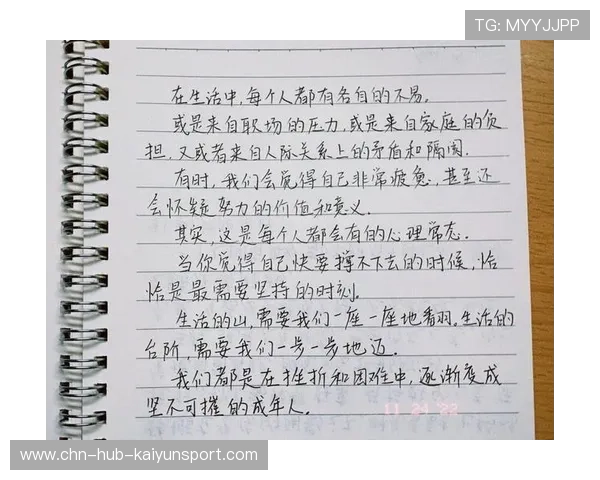 TG: MYYJJPP
在生活中,每个人都有各自的不易。
或是来自职场的压力,或是来自家庭的负
担,又或者来自人际关系上的矛盾和隔阂。
有时,我们会觉得自己非常疲惫,甚至还
会怀疑努力的价值和意义。
其实,这是每个人都会有的心理常态。
当你觉得自己快要撑不下去的时候,恰
恰是最需要坚持的时刻。
生活的山,需要我们一座一座地翻。生活的
台阶,需要我们一步一步地迈。
我们都是在挫折和困难中,逐渐变成
坚不可摧的成年人。
www-chn-hub-kaiyunsport.com